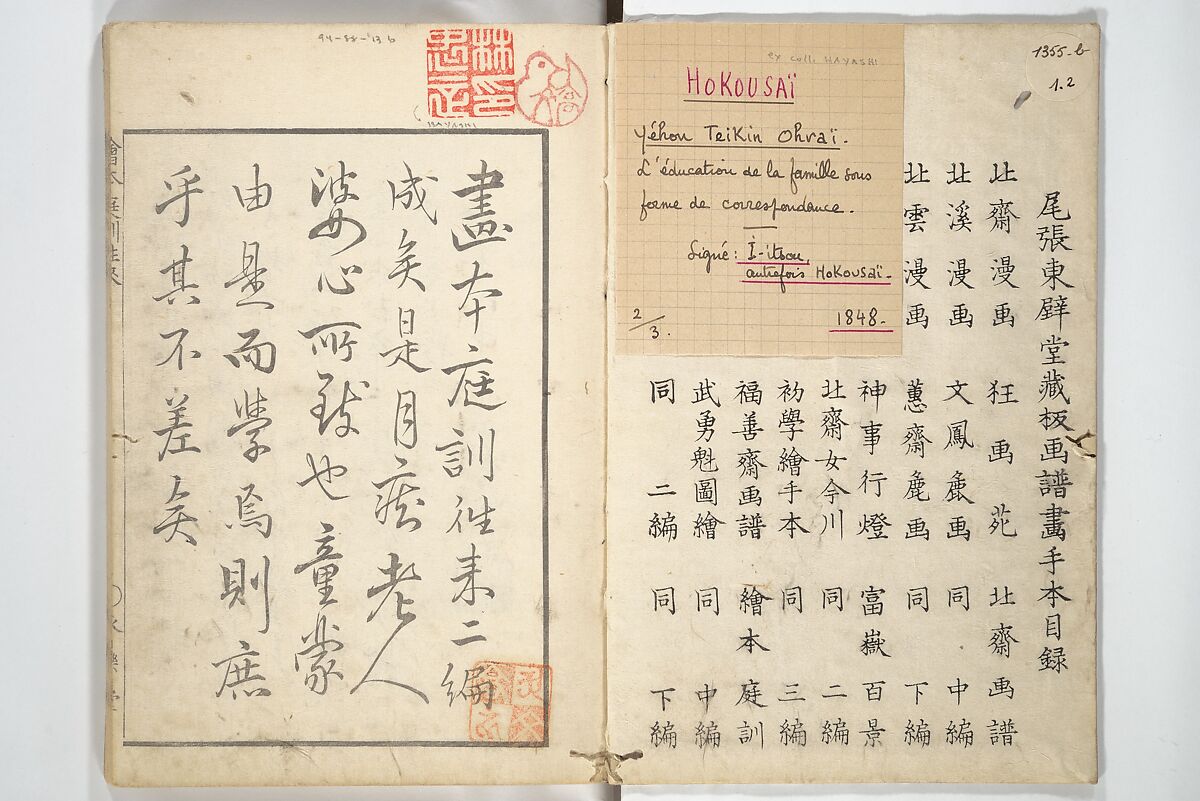 1355-b
1.2
ex coll. HAYASHI
HoKOUSAÏ
Yéhon TeiKin Ohraï.
L'éducation de la famille sous
forme de correspondance.
Signé: I-itsou,
autrefois HoKousaï.
2/3.
1848.
尾張東壁堂藏板画譜畫手本目録
北齋漫画 狂画苑 北齋画譜
北溪漫画 文鳳麁画 同 中編
北雲漫画 蕙齋麁画 同 下編
神事行燈 富嶽百景
北齋女今川 同 二編
初學繪手本 同 三編
福善齋画譜 繪本庭訓
武勇魁圖繪 同 中編
同 二編 同 下編
林忠正印
HAYASHI
畫本庭訓徃来二編
成矣是月癡老人
婆心所致也童蒙
由是而學焉則庶
乎其不差矣